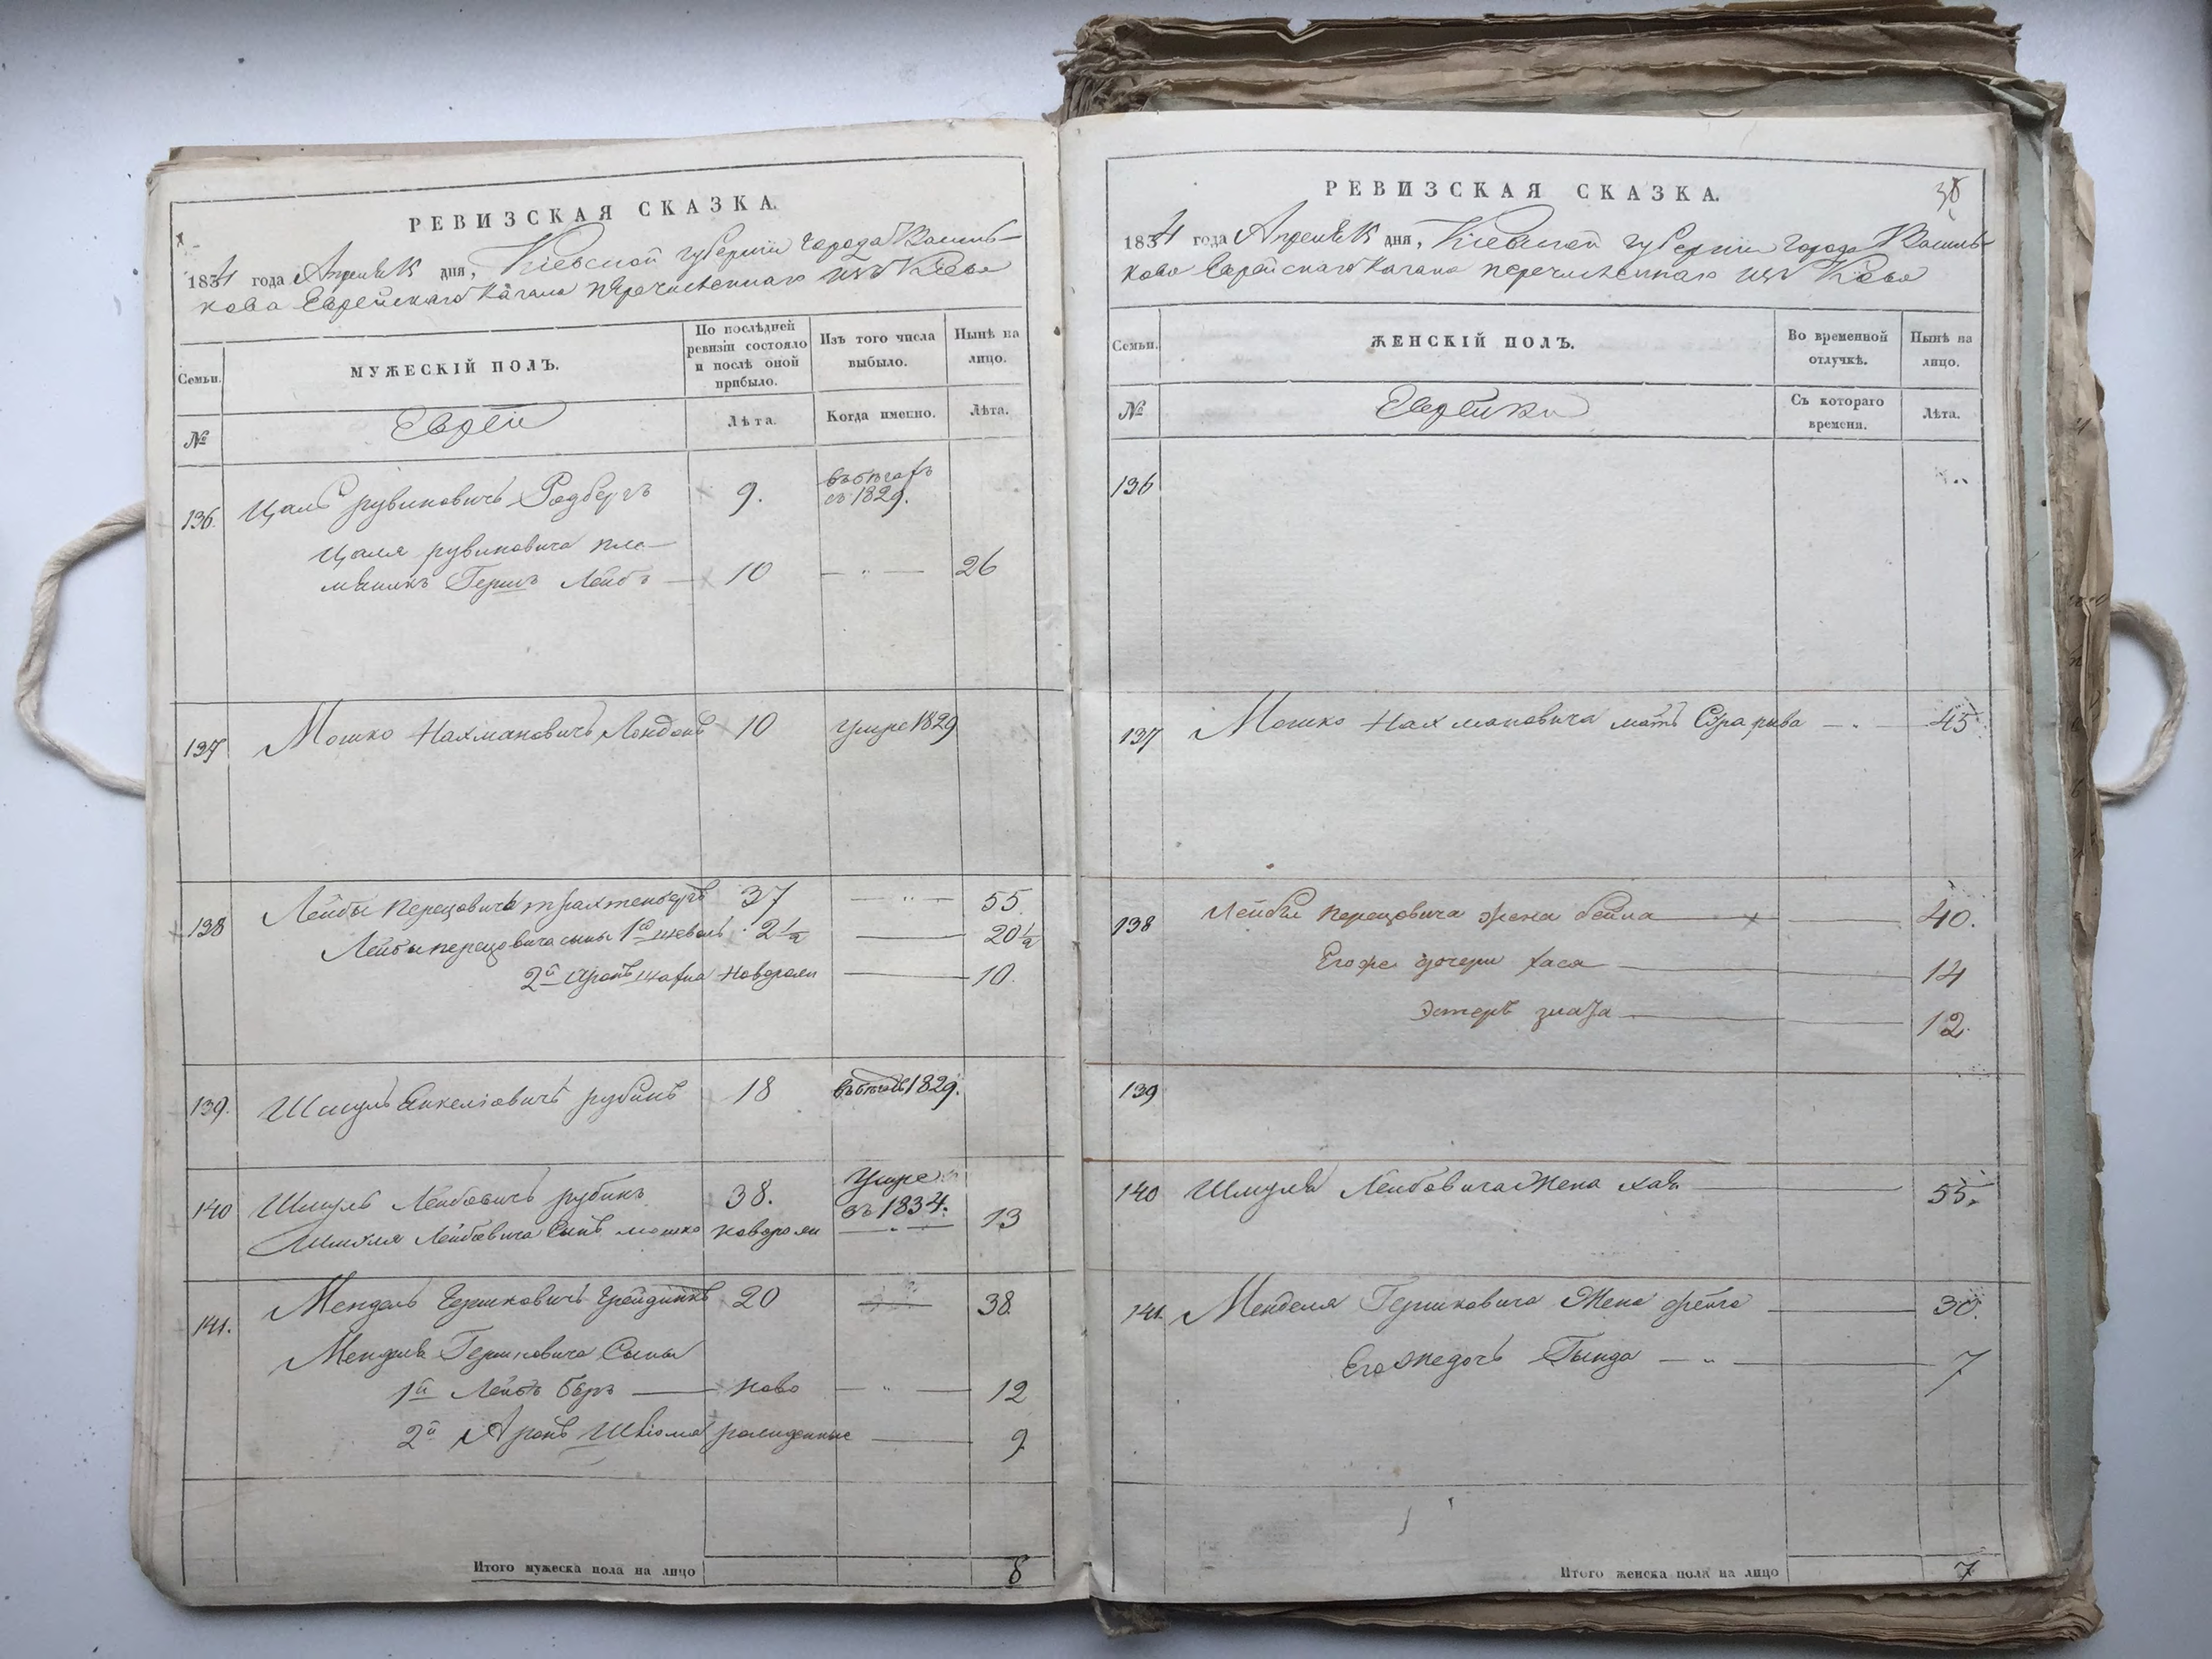 РЕВИЗСКАЯ СКАЗКА.
1834 года Апреля 15 дня, Кіевской губерніи города Василь-
кова Еврейскаго Кагала перечисленнаго изъ Кіева
Семьи.
МУЖЕСКІЙ ПОЛЪ.
По послѣдней ревизіи состояло и послѣ оной прибыло.
Изъ того числа выбыло.
Нынѣ на лицо.
№
Евреи
Лѣта.
Когда имено.
Лѣта.
136. Цаль рувиновичь Родбергъ 9. въ бегахъ съ 1829.
Цаля рувиновича пле-
мяникъ Гершъ Лейбъ — 10 — " — 26
137 Мошко Нахмановичъ Лондонъ 10 умре 1829
138 Лейбы перецовичь трахтенбергъ 37 — " — 55
Лейбы перецовича сыны 1й шевель 2 1/2 — 20 1/2
2й Сронь новорож — 10.
139. Шмуль Янкеліовичъ рубинъ 18 въ бегахъ 1829.
140 Шмуль Лейбовичъ рубинъ 38. умре въ 1834.
Шмуля Лейбовича Сынъ мошко новорож — " — 13
141. Мендель Гершковичъ 20 — 38.
Менделя Гершковича Сыны
1й Лейбъ беръ — ново — " — 12
2й Аронъ Шліома рожденные — 9
Итого мужеска пола на лицо 8
РЕВИЗСКАЯ СКАЗКА.
38
1834 года Апреля 15 дня, Кіевской губерніи города Василь-
кова Еврейскаго Кагала перечисленнаго изъ Кіева
Семьи.
ЖЕНСКІЙ ПОЛЪ.
Во временной отлучкѣ.
Нынѣ на лицо.
№
Еврейки
Съ котораго времени.
Лѣта.
136
137 Мошко Нахмановича мать Сура рива — " — 45
138 Лейбы перецовича жена бейла — 40.
Егоже дочери хася — 14
Эстеръ злата — 12.
139
140 Шмуля Лейбовича Жена хава — 55.
141. Менделя Гершковича Жена фейга — 30.
Егоже дочь Гинда — " — 7
Итого женска пола на лицо 7